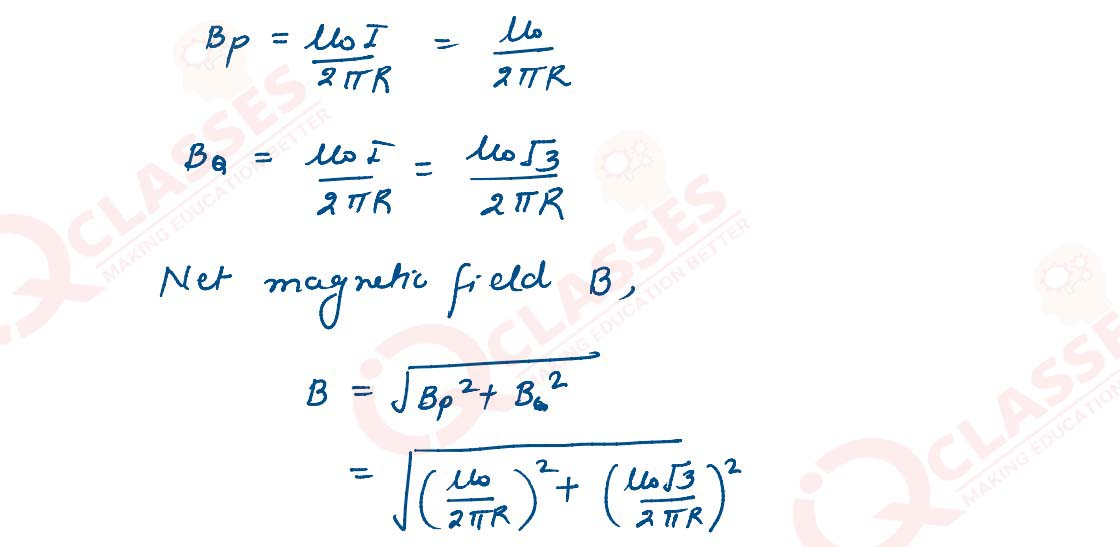 B_P = μ₀I / 2πR = μ₀ / 2πR
B_Q = μ₀I / 2πR = μ₀√3 / 2πR
Net magnetic field B,
B = √(B_P² + B_Q²)
= √((μ₀ / 2πR)² + (μ₀√3 / 2πR)²)
CLASSES
MAKING EDUCATION BETTER
CLASSES
MAKING EDUCATION BETTER
CLASSES
MAKING EDUCATION